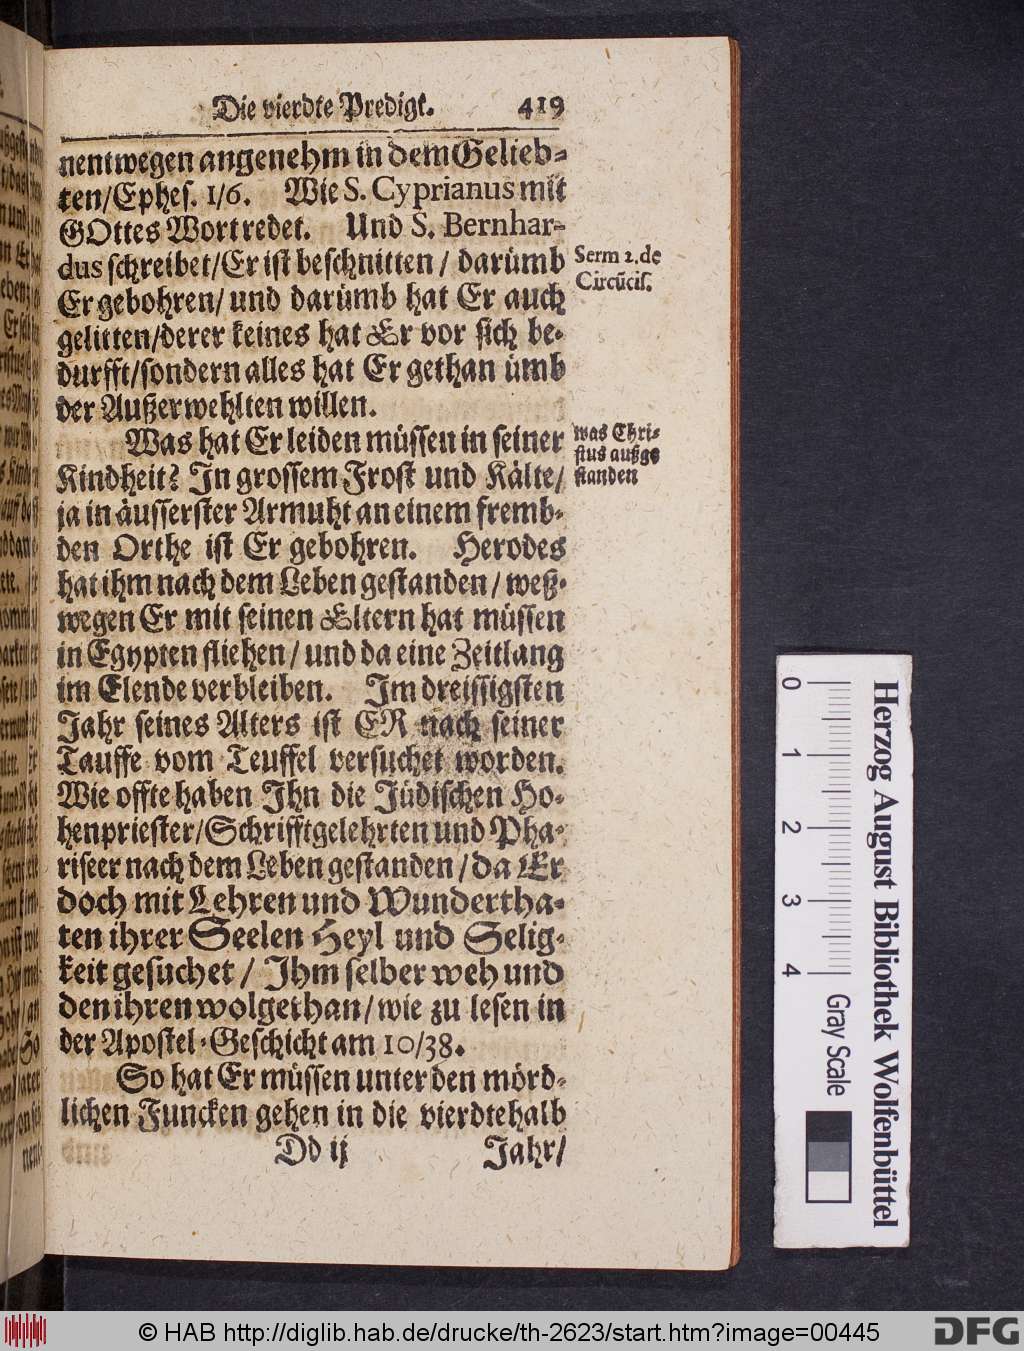 Die vierdte Predigt. 419
nentwegen angenehm in dem Gelieb-
ten/Ephes. 1/6. Wie S. Cyprianus mit
GOttes Wort redet. Und S. Bernhar-
dus schreibet/Er ist beschnitten / darümb
Er gebohren/ und darümb hat Er auch
gelitten/derer keines hat Er vor sich be-
durfft/sondern alles hat Er gethan ümb
der Außerwehlten willen.
Serm 2. de
Circūcis.
Was hat Er leiden müssen in seiner
Kindheit? In grossem Frost und Kälte/
ja in äusserster Armuht an einem fremb-
den Orthe ist Er gebohren. Herodes
hat ihm nach dem Leben gestanden / weß-
wegen Er mit seinen Eltern hat müssen
in Egypten fliehen / und da eine Zeitlang
im Elende verbleiben. Im dreissigsten
Jahr seines Alters ist ER nach seiner
Tauffe vom Teuffel versuchet worden.
Wie offte haben Ihn die Jüdischen Ho-
henpriester/Schrifftgelehrten und Pha-
riseer nach dem Leben gestanden / da Er
doch mit Lehren und Wundertha-
ten ihrer Seelen Heyl und Selig-
keit gesuchet / Ihm selber weh und
den ihren wolgethan/ wie zu lesen in
der Apostel-Geschicht am 10/38.
was Chri-
stus außge
standen
So hat Er müssen unter den mörd-
lichen Juncken gehen in die vierdtehalb
Dd ij Jahr/
Herzog August Bibliothek Wolfenbüttel
0 1 2 3 4
Gray Scale
© HAB http://diglib.hab.de/drucke/th-2623/start.htm?image=00445
DFG